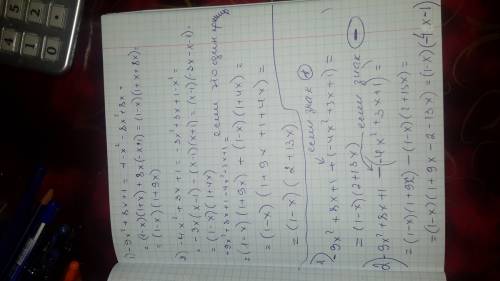 1) -9x² + 8x + 1 = 1 - x² - 8x² + 8x =
= (1-x)(1+x) + 8x(-x+1) = (1-x)(1+x+8x) =
= (1-x)(1+9x)
2) -4x² + 3x + 1 = -3x² + 3x + 1 - x² =
= -3x(x-1) - (x-1)(x+1) = (x-1)(-3x-x-1) =
= (1-x)(1+4x)
если это один пример
-9x² + 8x + 1 - 4x² + 3x + 1 =
= (1-x)(1+9x) + (1-x)(1+4x) =
= (1-x)(1+9x+1+4x) =
= (1-x)(2+13x)
если знак +
1) -9x² + 8x + 1 + (-4x² + 3x + 1) =
= (1-x)(2+13x)
если знак -
2) -9x² + 8x + 1 - (-4x² + 3x + 1) =
= (1-x)(1+9x) - (1-x)(2+13x) =
= (1-x)(1+9x-2-13x) = (1-x)(-4x-1)